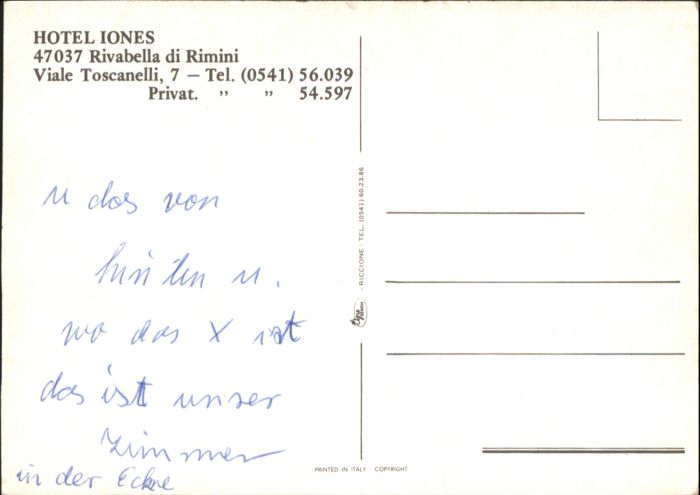 HOTEL IONES
47037 Rivabella di Rimini
Viale Toscanelli, 7 – Tel. (0541) 56.039
Privat. ” ” 54.597
u das von
hinten u.
wo das X ist
das ist unser
Zimmer
in der Ecke
RICCIONE - TEL. (0541) 60.23.86
PRINTED IN ITALY - COPYRIGHT